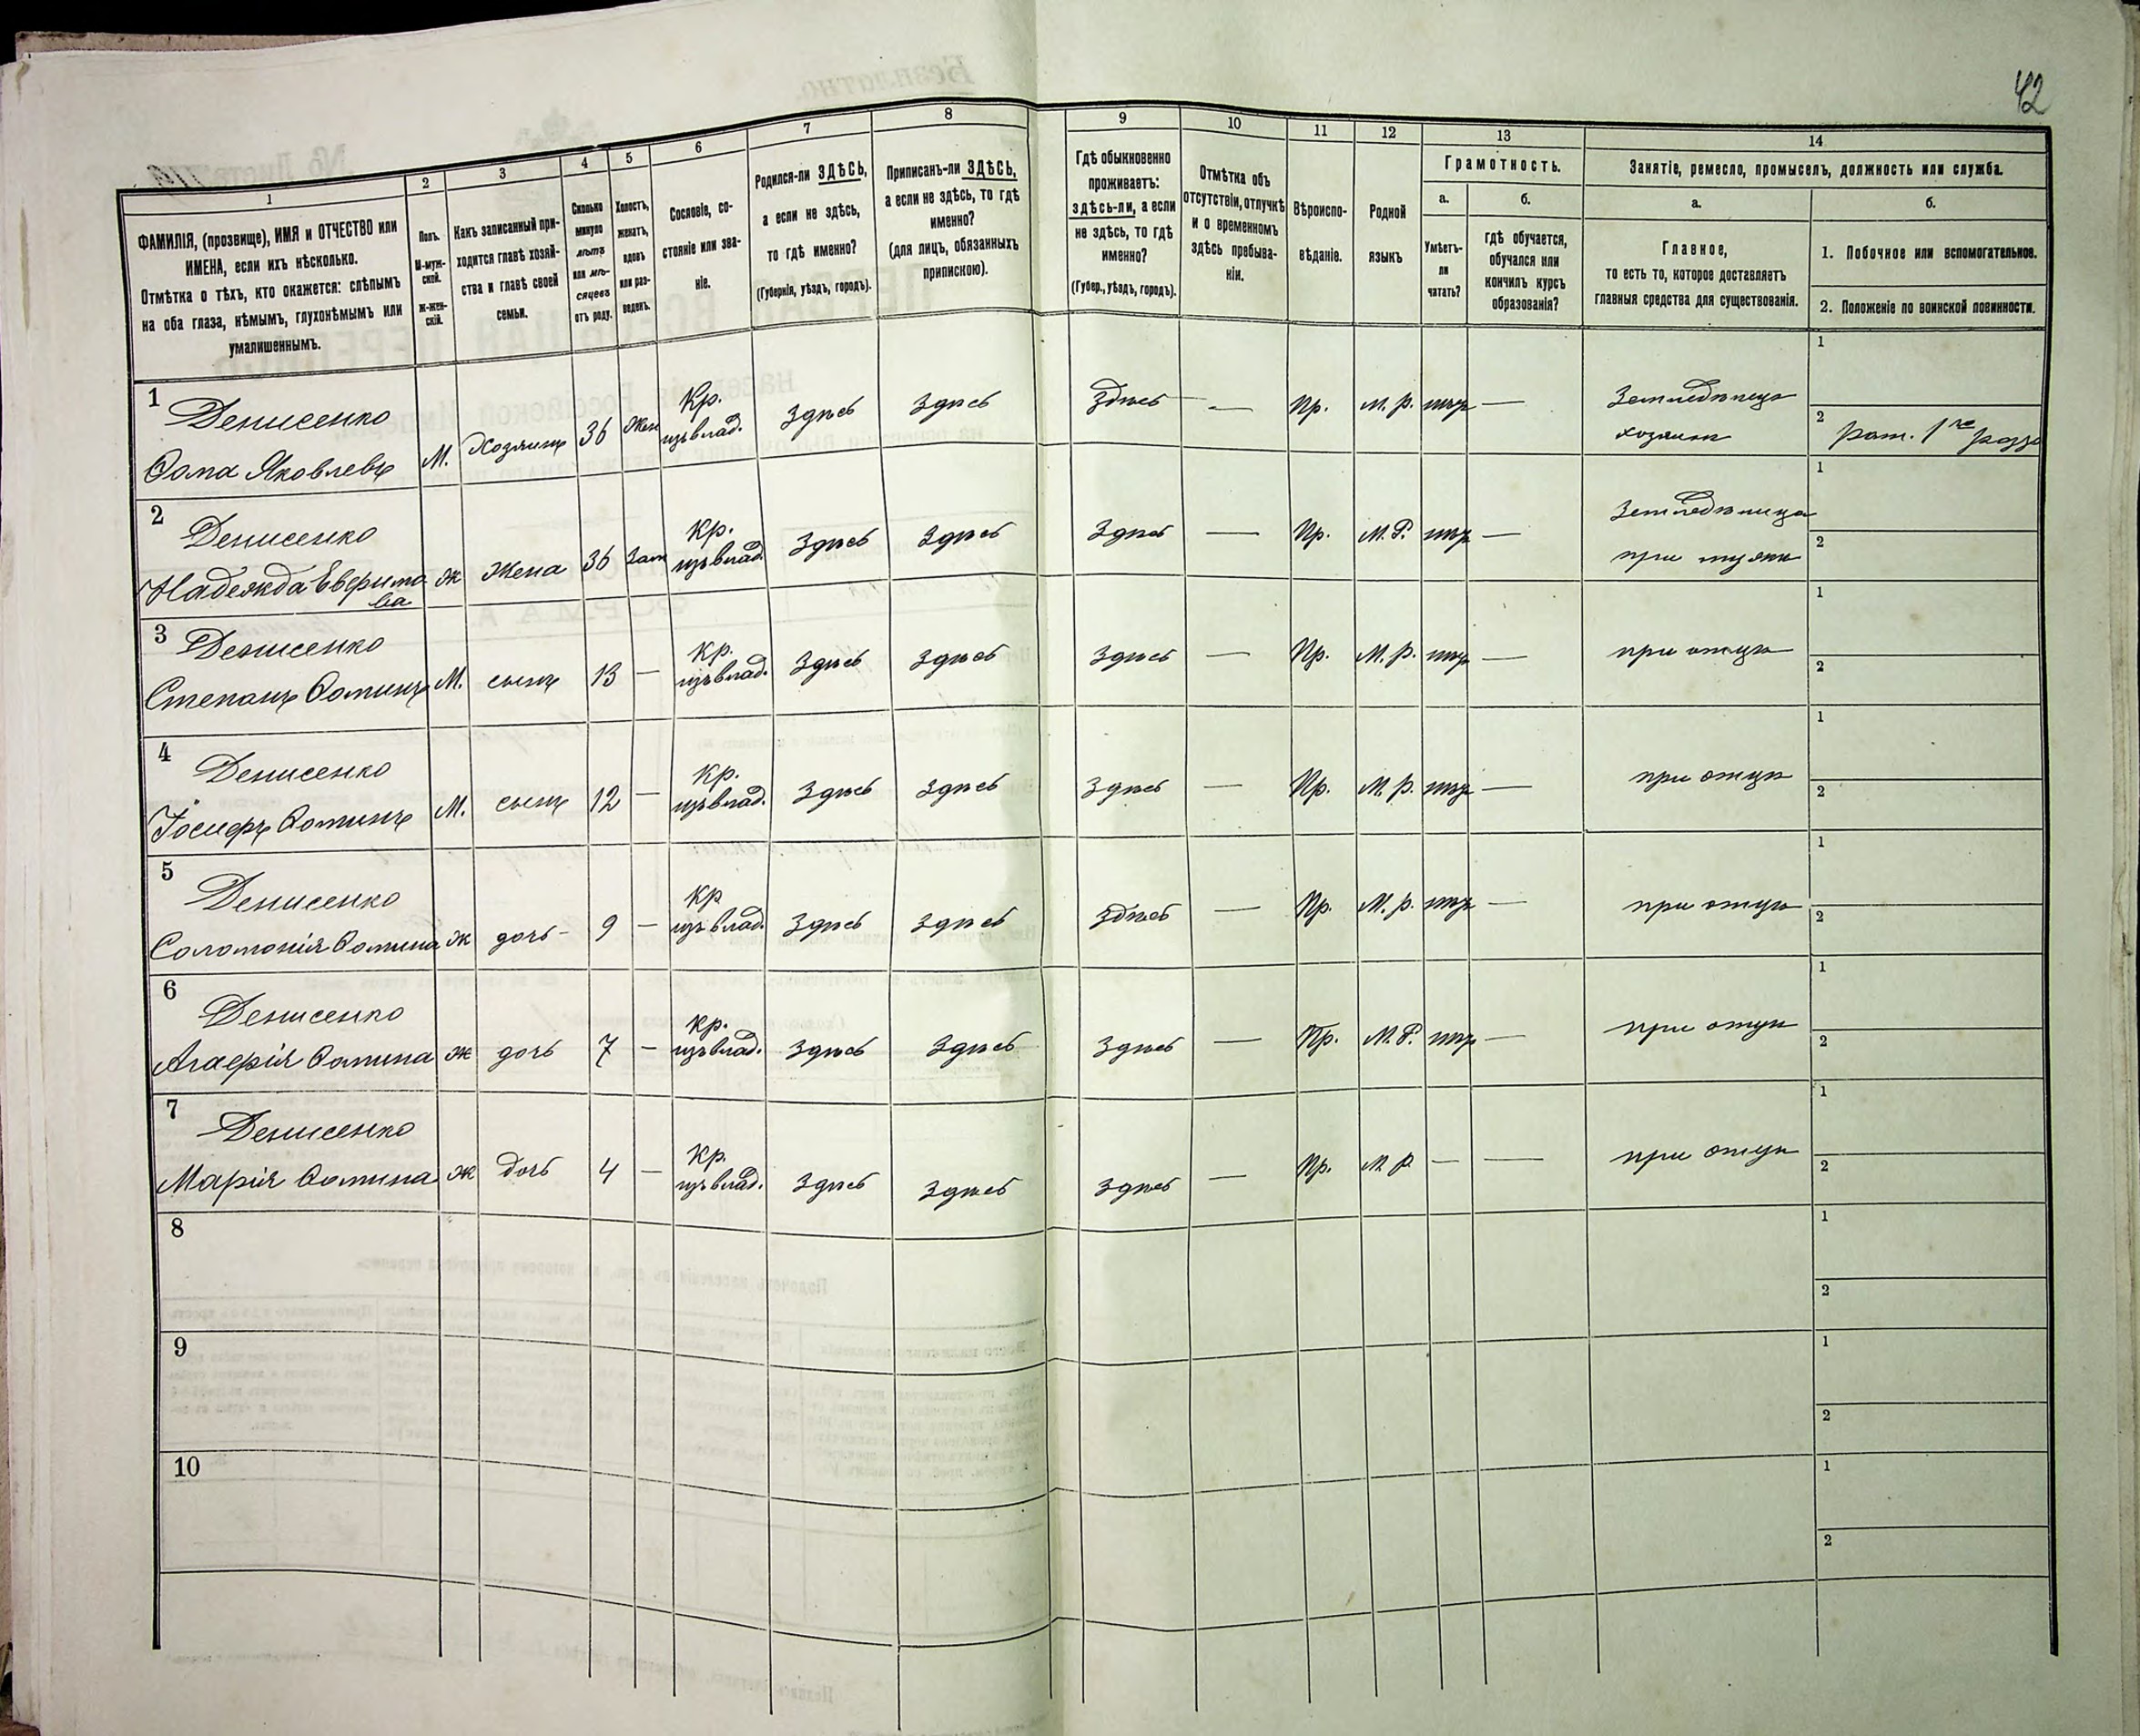 42
1
2
3
4
5
6
7
8
9
10
11
12
13
14
ФАМИЛІЯ, (прозвище), ИМЯ и ОТЧЕСТВО или
ИМЕНА, если ихъ нѣсколько.
Отмѣтка о тѣхъ, кто окажется: слѣпымъ
на оба глаза, нѣмымъ, глухонѣмымъ или
умалишеннымъ.
Полъ.
М-муж-
ской.
Ж-жен-
скій.
Какъ записанный при-
ходится главѣ хозяй-
ства и главѣ своей
семьи.
Сколько
минуло
лѣтъ
или мѣ-
сяцевъ
отъ роду.
Холостъ,
женатъ,
вдовъ
или раз-
веденъ.
Сословіе, со-
стояніе или зва-
ніе.
Родился-ли ЗДѢСЬ,
а если не здѣсь,
то гдѣ именно?
(Губернія, уѣздъ, городъ).
Приписанъ-ли ЗДѢСЬ,
а если не здѣсь, то гдѣ
именно?
(для лицъ, обязанныхъ
припискою).
Гдѣ обыкновенно
проживаетъ:
здѣсь-ли, а если
не здѣсь, то гдѣ
именно?
(Губер., уѣздъ, городъ).
Отмѣтка объ
отсутствіи, отлучкѣ
и о временномъ
здѣсь пребыва-
ніи.
Вѣроиспо-
вѣданіе.
Родной
языкъ
Грамотность.
а.
Умѣетъ-
ли
читать?
б.
гдѣ обучается,
обучался или
кончилъ курсъ
образованія?
Занятіе, ремесло, промыселъ, должность или служба.
а.
Главное,
то есть то, которое доставляетъ
главныя средства для существованія.
б.
1. Побочное или вспомогательное.
2. Положеніе по воинской повинности.
1
Денисенко
Ѳома Яковлевъ
М. Хозяинъ 36 Жен
Кр.
изъ влад.
Здѣсь Здѣсь Здѣсь — Пр. М. р. нѣтъ —
Земледѣлецъ
хозяинъ
1
2 рат. 1го разр
2
Денисенко
Надежда Евфимо
ва
Ж Жена 36 Зам
Кр.
изъ влад.
Здѣсь Здѣсь Здѣсь — Пр. М. Р. нѣтъ —
Земледѣлица
при мужѣ
1
2
3
Денисенко
Степанъ Ѳоминъ
М. сынъ 13 —
Кр.
изъ влад.
Здѣсь Здѣсь Здѣсь — Пр. М. р. нѣтъ —
при отцѣ
1
2
4
Денисенко
Іосифъ Ѳоминъ
М. сынъ 12 —
Кр.
изъ влад.
Здѣсь Здѣсь Здѣсь — Пр. М. р. нѣтъ —
при отцѣ
1
2
5
Денисенко
Соломонія Ѳомина
Ж дочь 9 —
Кр
изъ влад.
Здѣсь Здѣсь Здѣсь — Пр. М. р. нѣтъ —
при отцѣ
1
2
6
Денисенко
Агафія Ѳомина
Ж дочь 7 —
Кр.
изъ влад.
Здѣсь Здѣсь Здѣсь — Пр. М. Р. нѣтъ —
при отцѣ
1
2
7
Денисенко
Марія Ѳомина
Ж дочь 4 —
Кр.
изъ влад.
Здѣсь Здѣсь Здѣсь — Пр. М. р. — —
при отцѣ
1
2
8
1
2
9
1
2
10
1
2